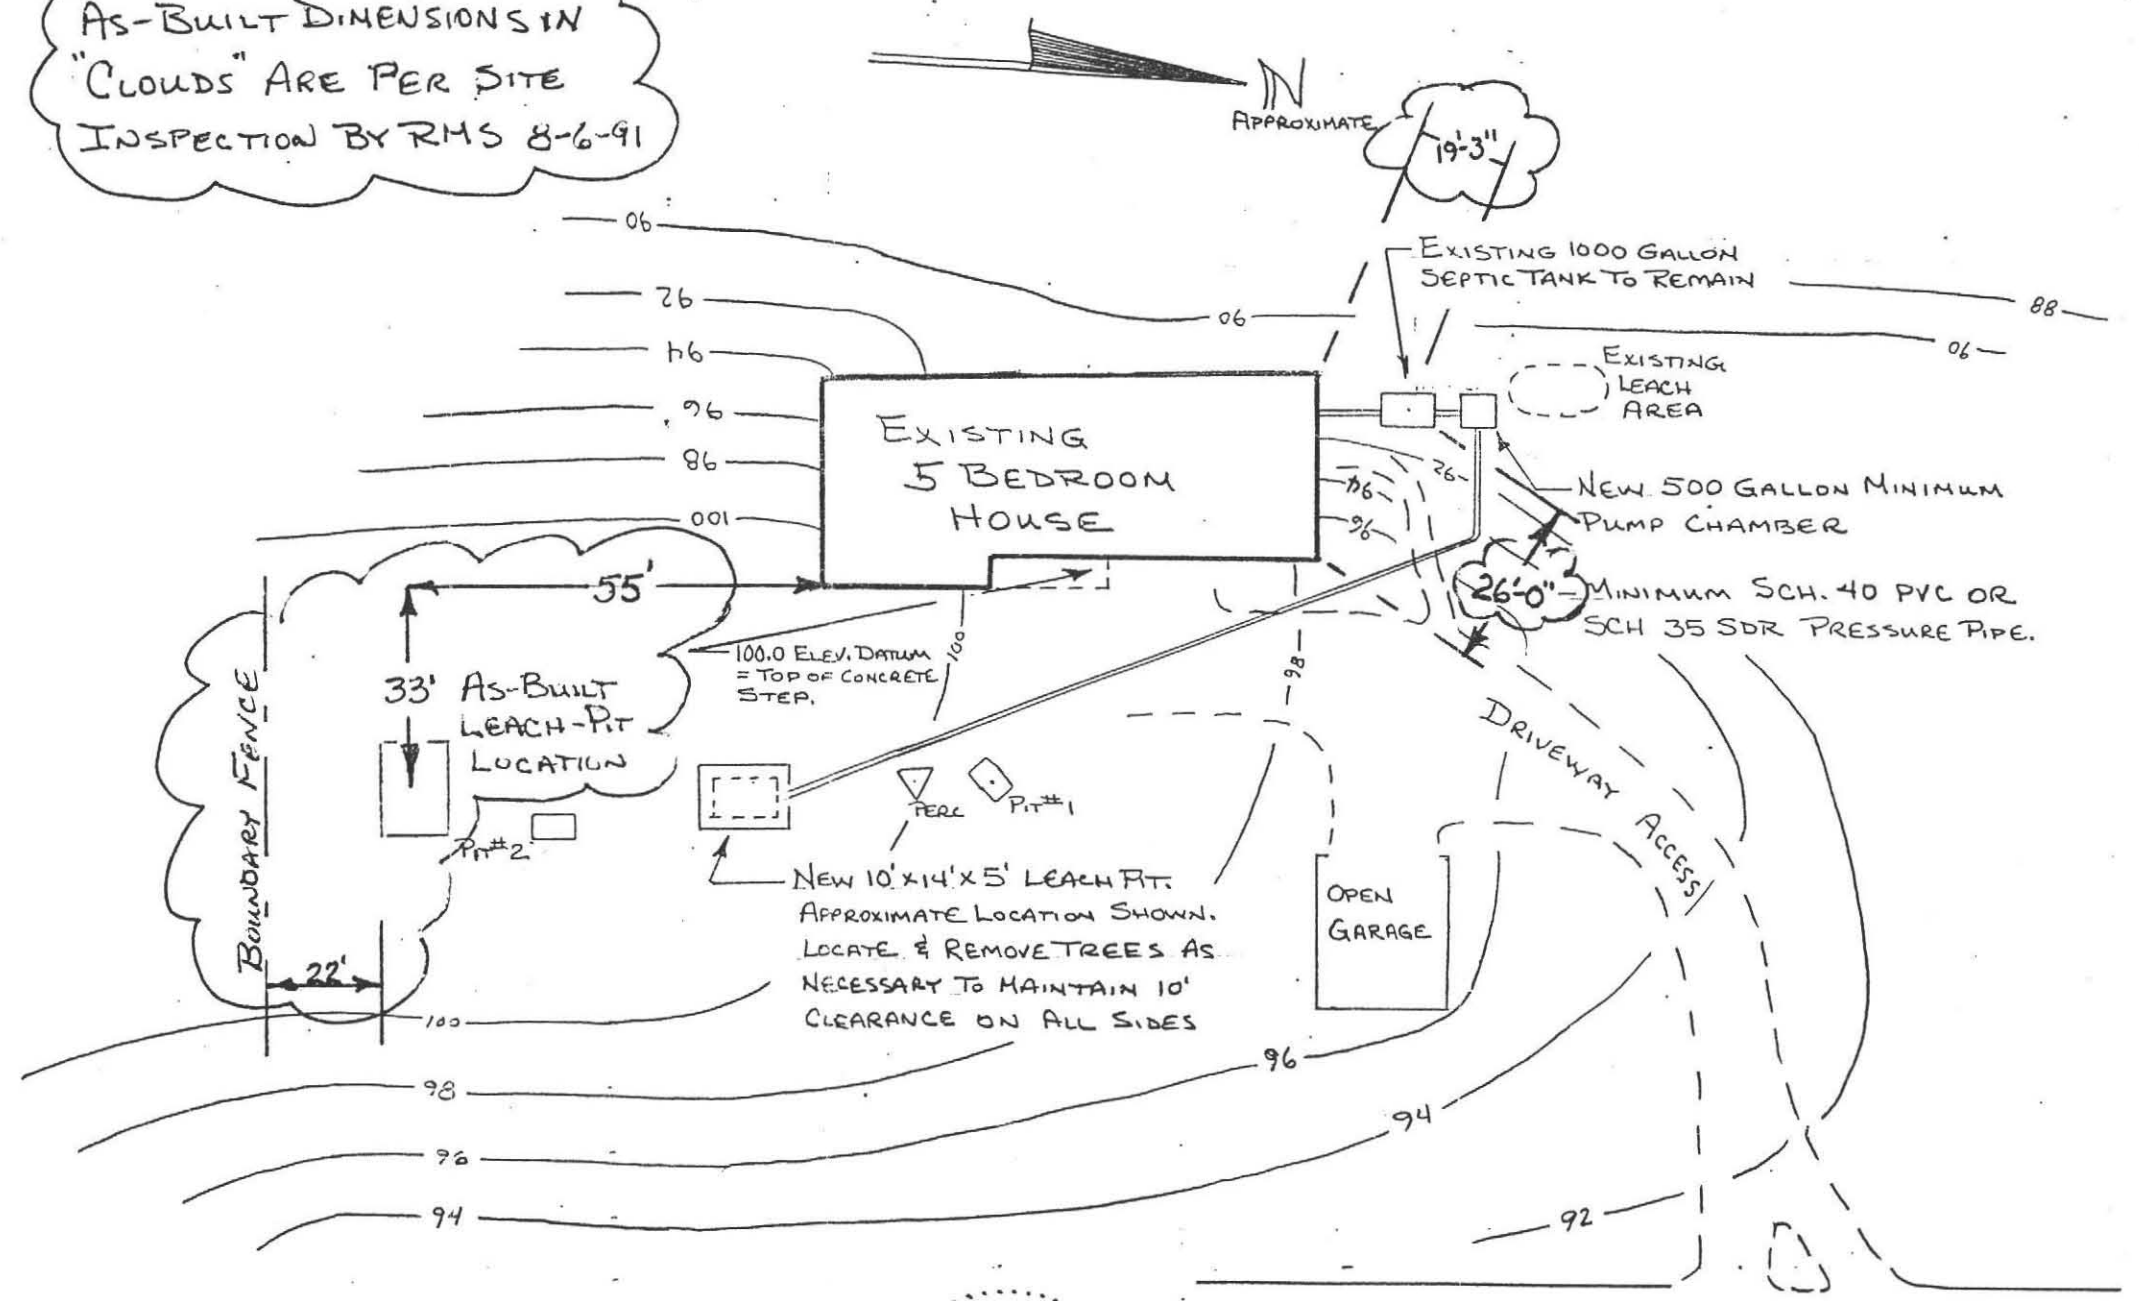 AS-BUILT DIMENSIONS IN
"CLOUDS" ARE PER SITE
INSPECTION BY RMS 8-6-91
N
APPROXIMATE
19'-3"
90
EXISTING 1000 GALLON
SEPTIC TANK TO REMAIN
92
90
88
94
90
EXISTING
LEACH
AREA
96
EXISTING
5 BEDROOM
HOUSE
98
92
94
NEW 500 GALLON MINIMUM
PUMP CHAMBER
100
96
55'
26'-0"
MINIMUM SCH. 40 PVC OR
SCH 35 SDR PRESSURE PIPE.
100.0 ELEV. DATUM
= TOP OF CONCRETE
STEP.
100
98
33'
AS-BUILT
LEACH-PIT
LOCATION
BOUNDARY FENCE
DRIVEWAY ACCESS
PERC
PIT #1
PIT #2
NEW 10' x 14' x 5' LEACH PIT.
APPROXIMATE LOCATION SHOWN.
LOCATE & REMOVE TREES AS
NECESSARY TO MAINTAIN 10'
CLEARANCE ON ALL SIDES
OPEN
GARAGE
22'
100
96
98
94
96
94
92